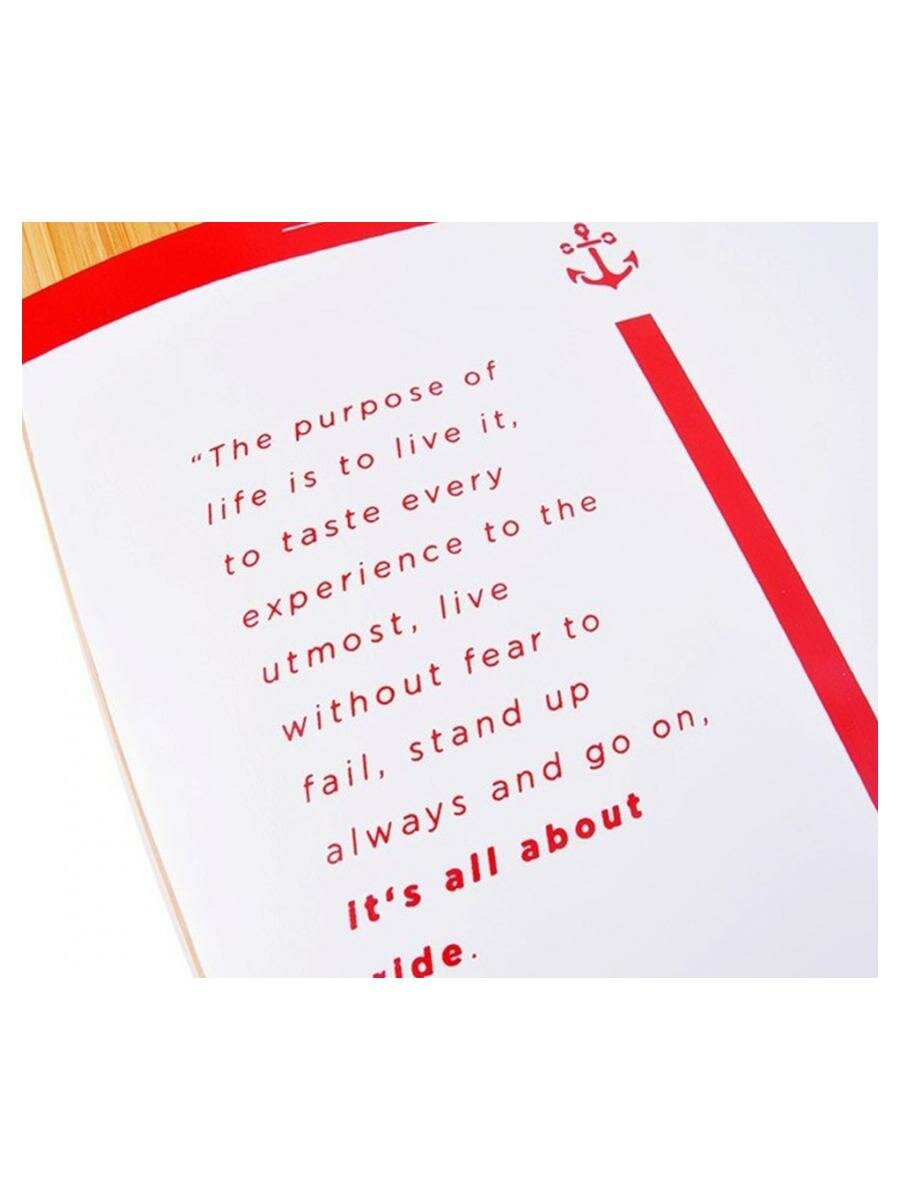 “The purpose of
life is to live it,
to taste every
experience to the
utmost, live
without fear to
fail, stand up
always and go on,
it‘s all about